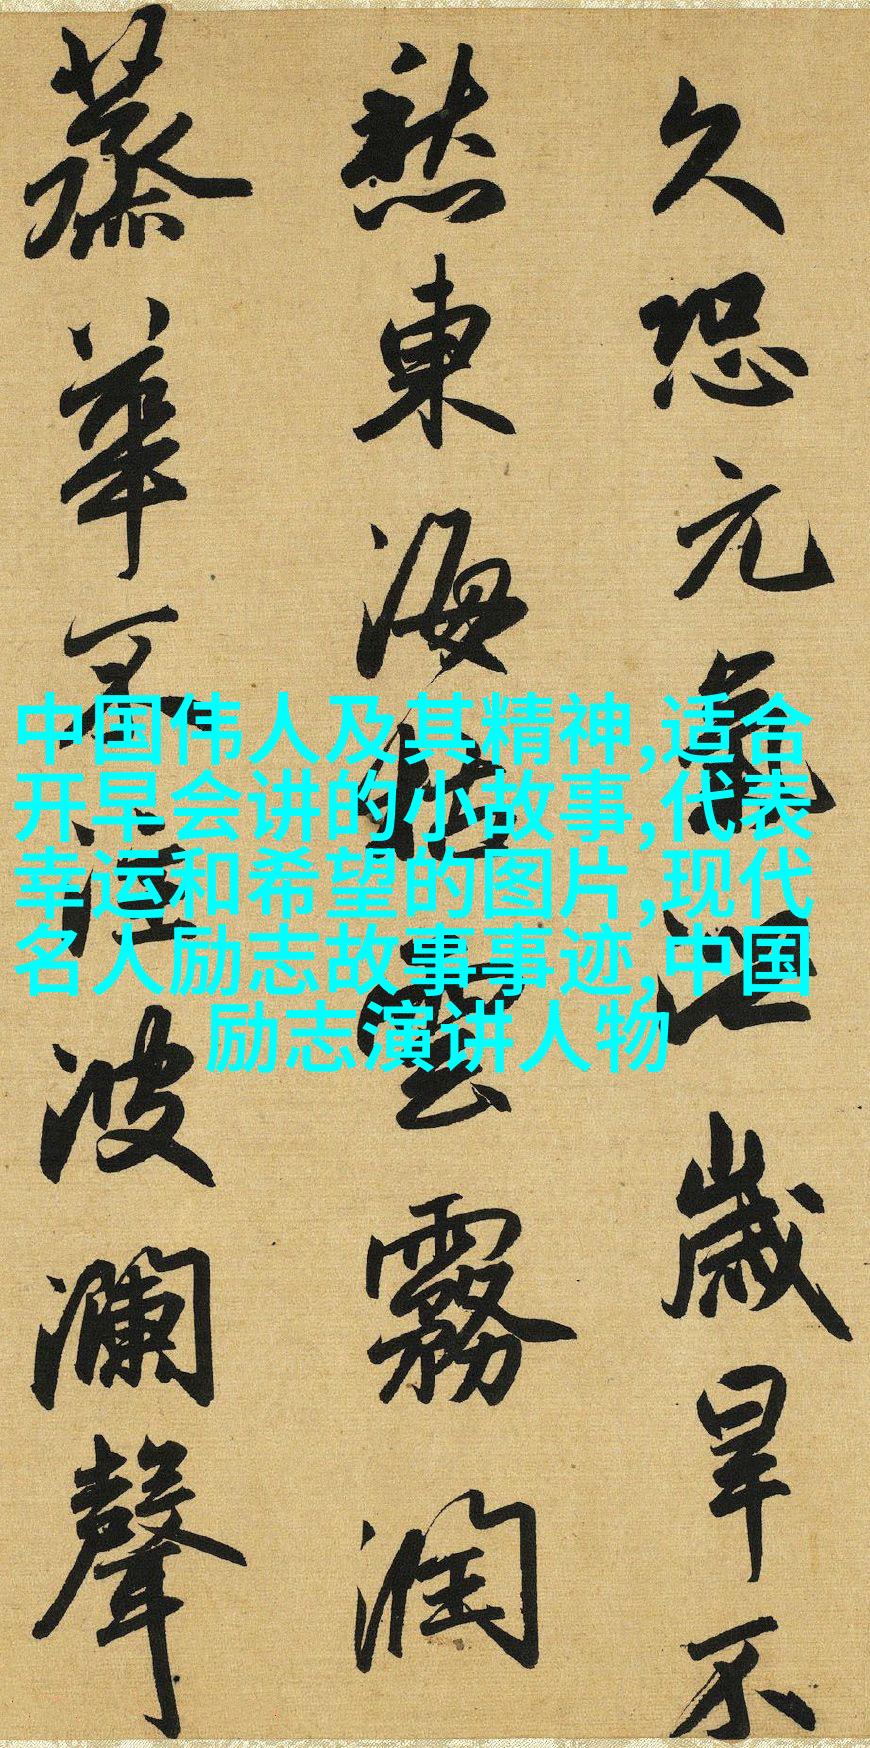 久恐元氣泄歲旱不
愁東海枯雲霧潤
蒸華不注波瀾聲
中国伟人及其精神,适合
开早会讲的小故事,代表
幸运和希望的图片,现代
名人励志故事事迹,中国
励志演讲人物